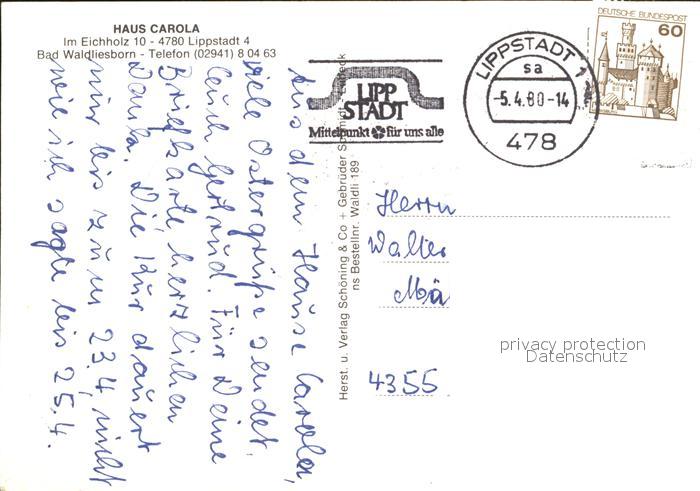 HAUS CAROLA
Im Eichholz 10 - 4780 Lippstadt 4
Bad Waldliesborn - Telefon (02941) 8 04 63
Aus dem Hause Carola,
viele Ostergrüße sendet
Euch Gertrud. Für Deine
Briefkarte herzlichen
Dank. Die Kur dauert
nur bis zum 23.4, nicht
wie ich sagte bis 25.4.
Herst. u. Verlag Schöning & Co + Gebrüder Schmidt - Lübeck
ns Bestellnr. Waldli 189
LIPP
STADT
Mittelpunkt für uns alle
LIPPSTADT 1
sa
-5.4.80-14
478
DEUTSCHE BUNDESPOST
60
Herrn
Walter
Mä
4355
privacy protection
Datenschutz